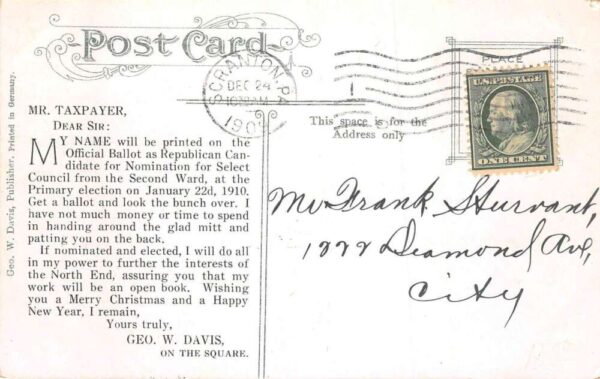 Post Card
PLACE
U.S. POSTAGE
ONE CENT
SCRANTON, PA.
DEC 24
This space is for the
Address only
Geo. W. Davis, Publisher. Printed in Germany.
MR. TAXPAYER,
DEAR SIR:
MY NAME will be printed on the
Official Ballot as Republican Can-
didate for Nomination for Select
Council from the Second Ward, at the
Primary election on January 22d, 1910.
Get a ballot and look the bunch over. I
have not much money or time to spend
in handing around the glad mitt and
patting you on the back.
If nominated and elected, I will do all
in my power to further the interests of
the North End, assuring you that my
work will be an open book. Wishing
you a Merry Christmas and a Happy
New Year, I remain,
Yours truly,
GEO. W. DAVIS,
ON THE SQUARE.
Mr Frank Sturvant,
Deamond Ave,
City